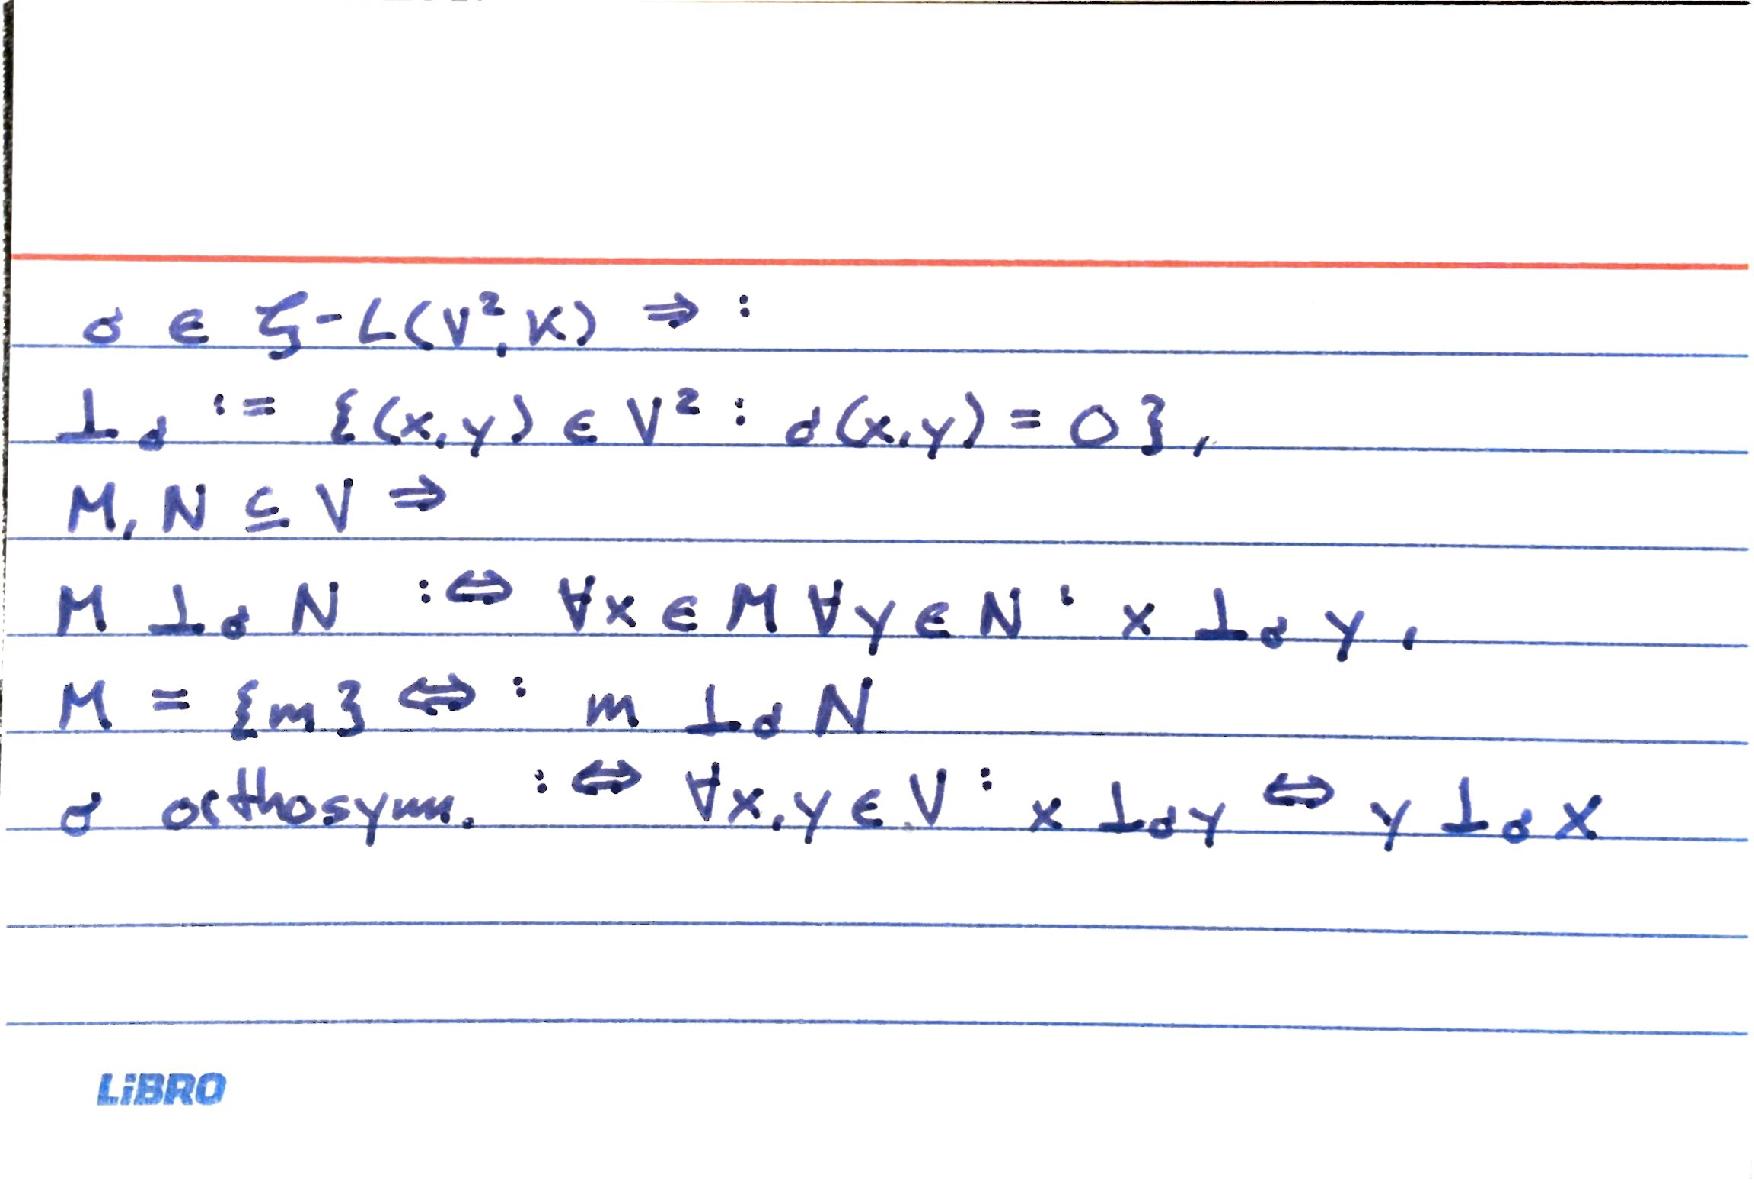 σ ∈ ζ-L(V², K) ⇒ :
⊥σ := {(x,y) ∈ V² : σ(x,y) = 0},
M, N ⊆ V ⇒
M ⊥σ N :⇔ ∀x ∈ M ∀y ∈ N : x ⊥σ y,
M = {m} ⇔: m ⊥σ N
σ orthosymm. :⇔ ∀x,y ∈ V : x ⊥σ y ⇔ y ⊥σ x
LiBRO